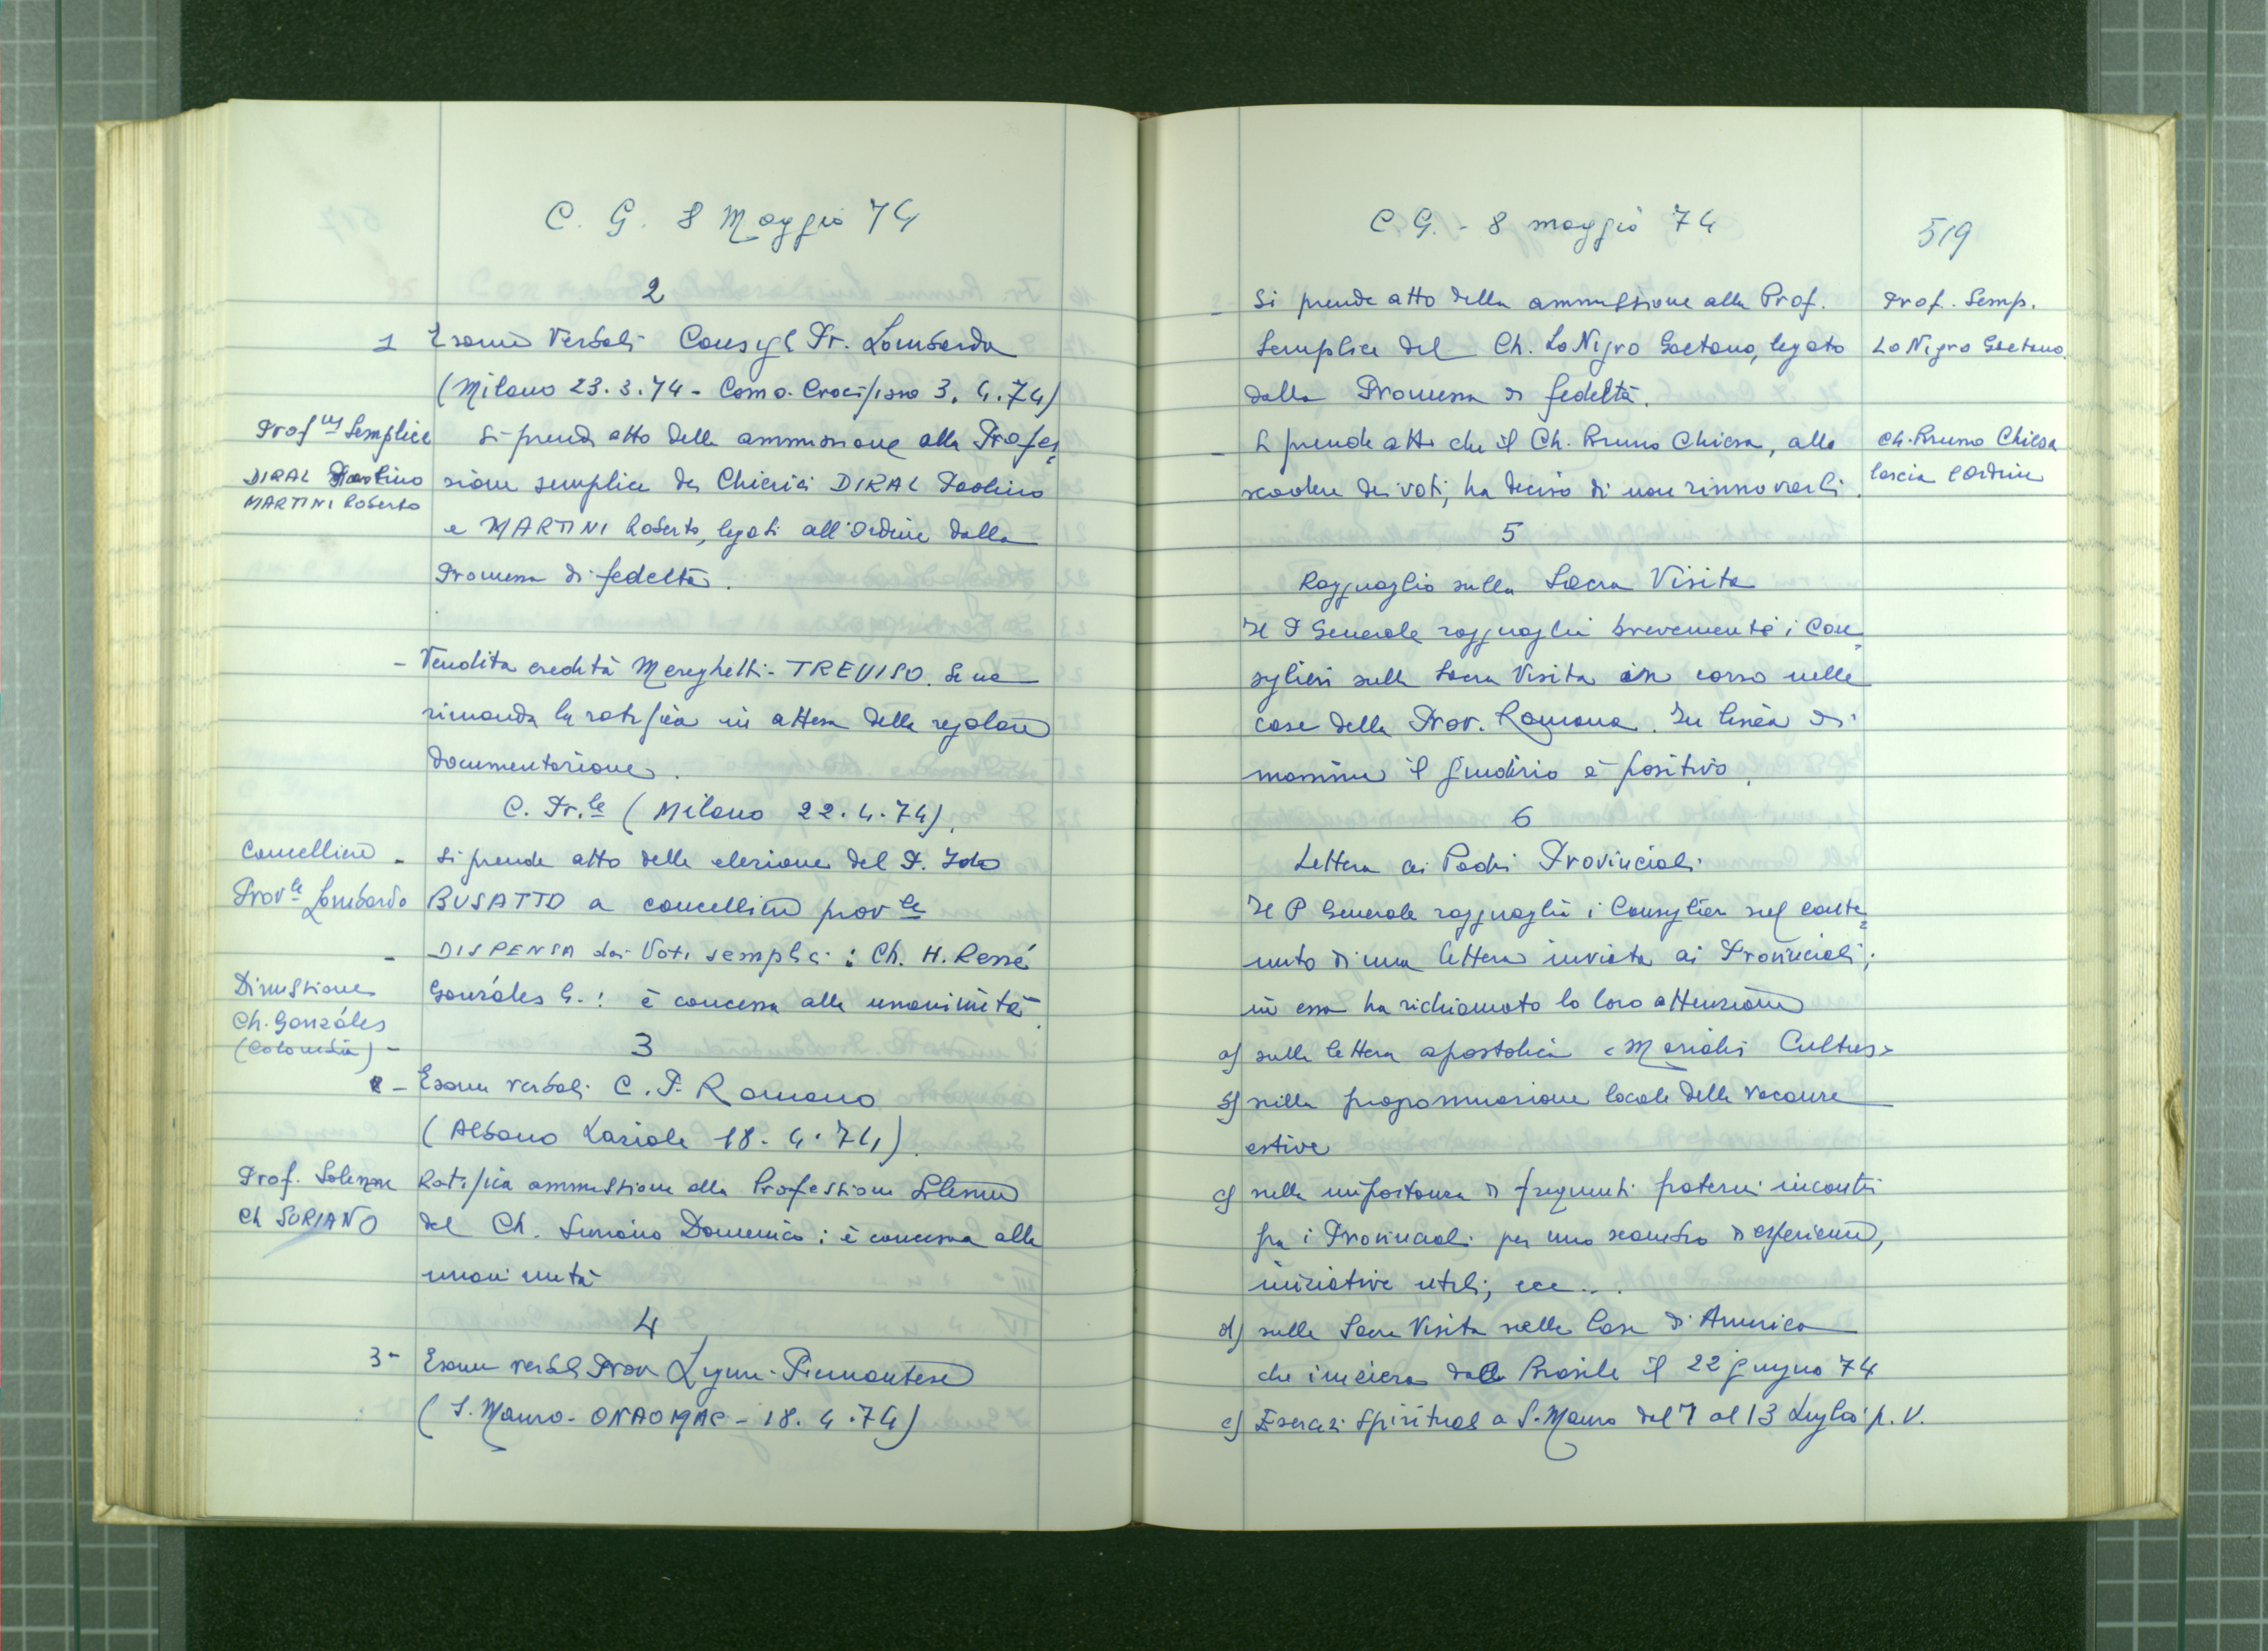 C. G. 8 Maggio 74
2
1 Esame Verbali Consigl Pr. Lombardo
(Milano 23.3.74 - Como-Crocifisso 3.4.74)
Prof.ne Semplice
DIRAL Paolino
MARTINI Roberto
Si prende atto della ammissione alla Profes=
sione semplice dei Chierici DIRAL Paolino
e MARTINI Roberto, legati all'Ordine dalla
Promessa di fedeltà.
- Vendita eredità Mereghetti - TREVISO. Se ne
rimanda la ratifica in attesa della regolare
documentazione.
C. Pr.le (Milano 22.4.74).
Cancelliere
Prov.le Lombardo
- Si prende atto della elezione del P. Ido
BUSATTO a cancelliere prov.le
- DISPENSA dai Voti semplici: Ch. H. Ressé
Gonzáles G.: è concessa alla unanimità.
Dimissione
Ch. Gonzáles
(Colombia) -
3
2 - Esame verbali C. P. Romano
(Albano Laziale 18.4.74).
Prof. Solenne
Ch SORIANO
Ratifica ammissione alla Professione Solenne
del Ch. Soriano Domenico: è concessa alla
unanimità
4
3 - Esame verbali Prov Ligure-Piemontese
(S. Mauro - ONAOMAC - 18.4.74)
C. G. - 8 maggio 74
519
- Si prende atto della ammissione alla Prof.
Semplice del Ch. Lo Nigro Gaetano, legato
dalla Promessa di fedeltà.
Prof. Semp.
Lo Nigro Gaetano.
- Si prende atto che il Ch. Bruno Chiesa, allo
scadere dei voti, ha deciso di non rinnovarli.
Ch. Bruno Chiesa
lascia l'Ordine
5
Ragguaglio sulla Sacra Visita
Il P Generale ragguaglia brevemente i Con=
siglieri sulla Sacra Visita in corso nelle
case della Prov. Romana. In linea di
massima il giudizio è positivo.
6
Lettera ai Padri Provinciali
Il P Generale ragguaglia i Consiglieri sul conte=
nuto di una lettera inviata ai Provinciali;
in essa ha richiamato la loro attenzione
a) sulla lettera apostolica "Marialis Cultus"
b) sulla programmazione locale delle vacanze
estive
c) sulla importanza di frequenti fraterni incontri
fra i Provinciali per uno scambio di esperienze,
iniziative utili, ecc...
d) sulla Sacra Visita nelle Case di America
che inizierà dal Brasile il 22 giugno 74
e) Esercizi Spirituali a S. Mauro dal 7 al 13 Luglio p. v.